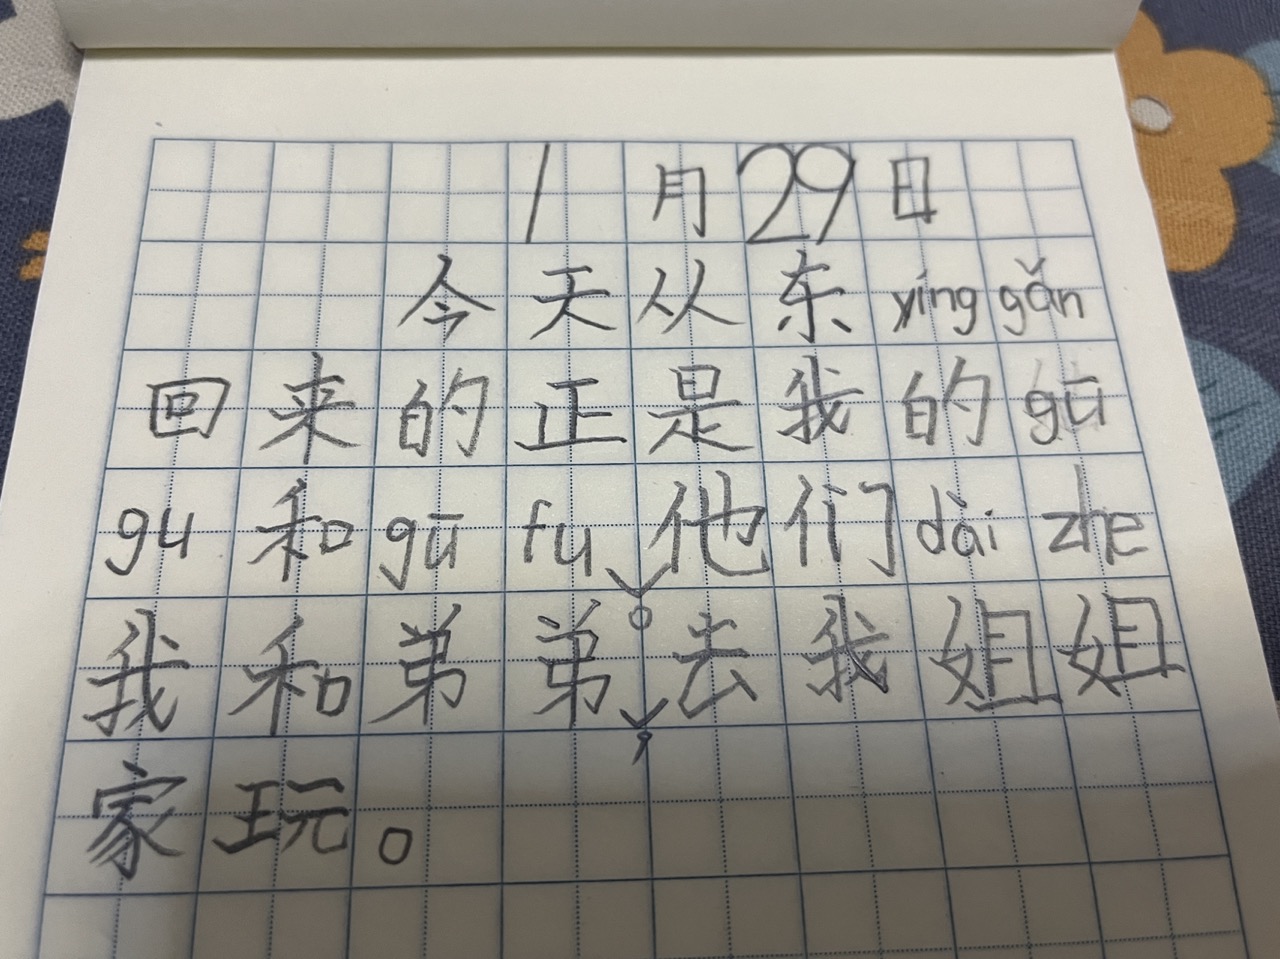 1月29日
今天从东yínggǎn
回来的正是我的gū
gu和gūfu。他们dàizhe
我和弟弟,去我姐姐
家玩。